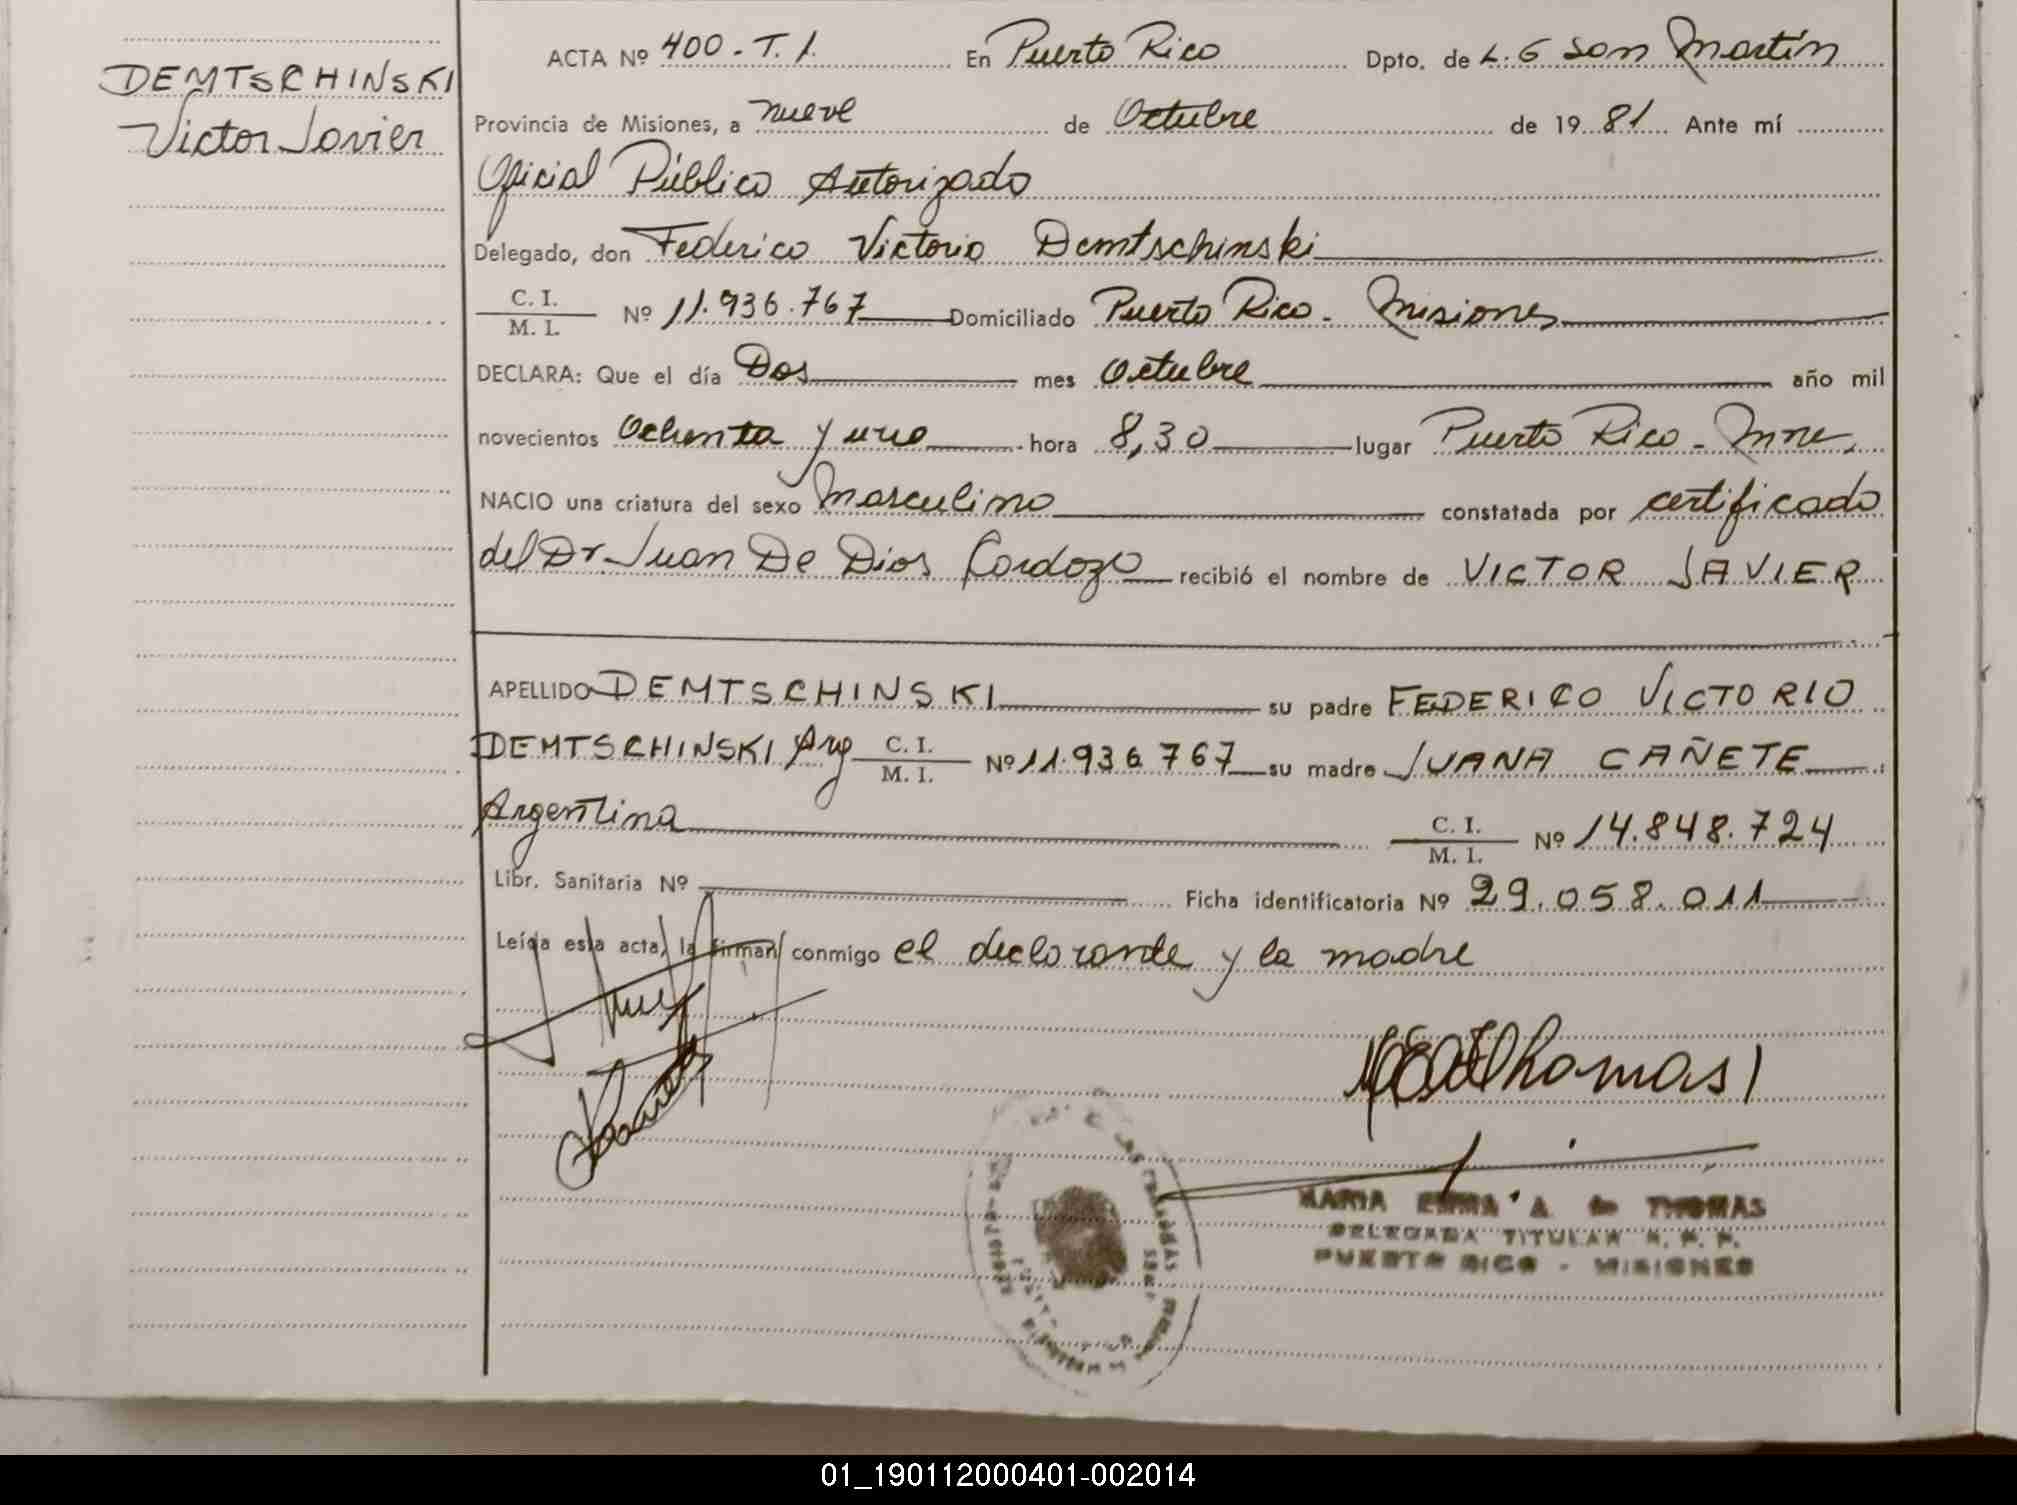 DEMTSCHINSKI
Victor Javier
ACTA Nº 400 - T. 1. En Puerto Rico Dpto. de L. G San Martín
Provincia de Misiones, a nueve de Octubre de 19 81 Ante mí
Oficial Público Autorizado
Delegado, don Federico Victorio Demtschinski
C. I. / M. I. Nº 11.936.767 Domiciliado Puerto Rico - Misiones
DECLARA: Que el día Dos mes Octubre año mil
novecientos Ochenta y uno hora 8,30 lugar Puerto Rico - Mnes.
NACIO una criatura del sexo Masculino constatada por certificado
del Dr. Juan De Dios Cardozo recibió el nombre de VICTOR JAVIER
APELLIDO DEMTSCHINSKI su padre FEDERICO VICTORIO
DEMTSCHINSKI Arg C. I. / M. I. Nº 11.936.767 su madre JUANA CAÑETE
Argentina C. I. / M. I. Nº 14.848.724
Libr. Sanitaria Nº Ficha identificatoria Nº 29.058.011
Leída esta acta, la firman conmigo el declarante y la madre
MARIA EMMA A. de THOMAS
DELEGADA TITULAR R. P. P.
PUERTO RICO - MISIONES
01_190112000401-002014